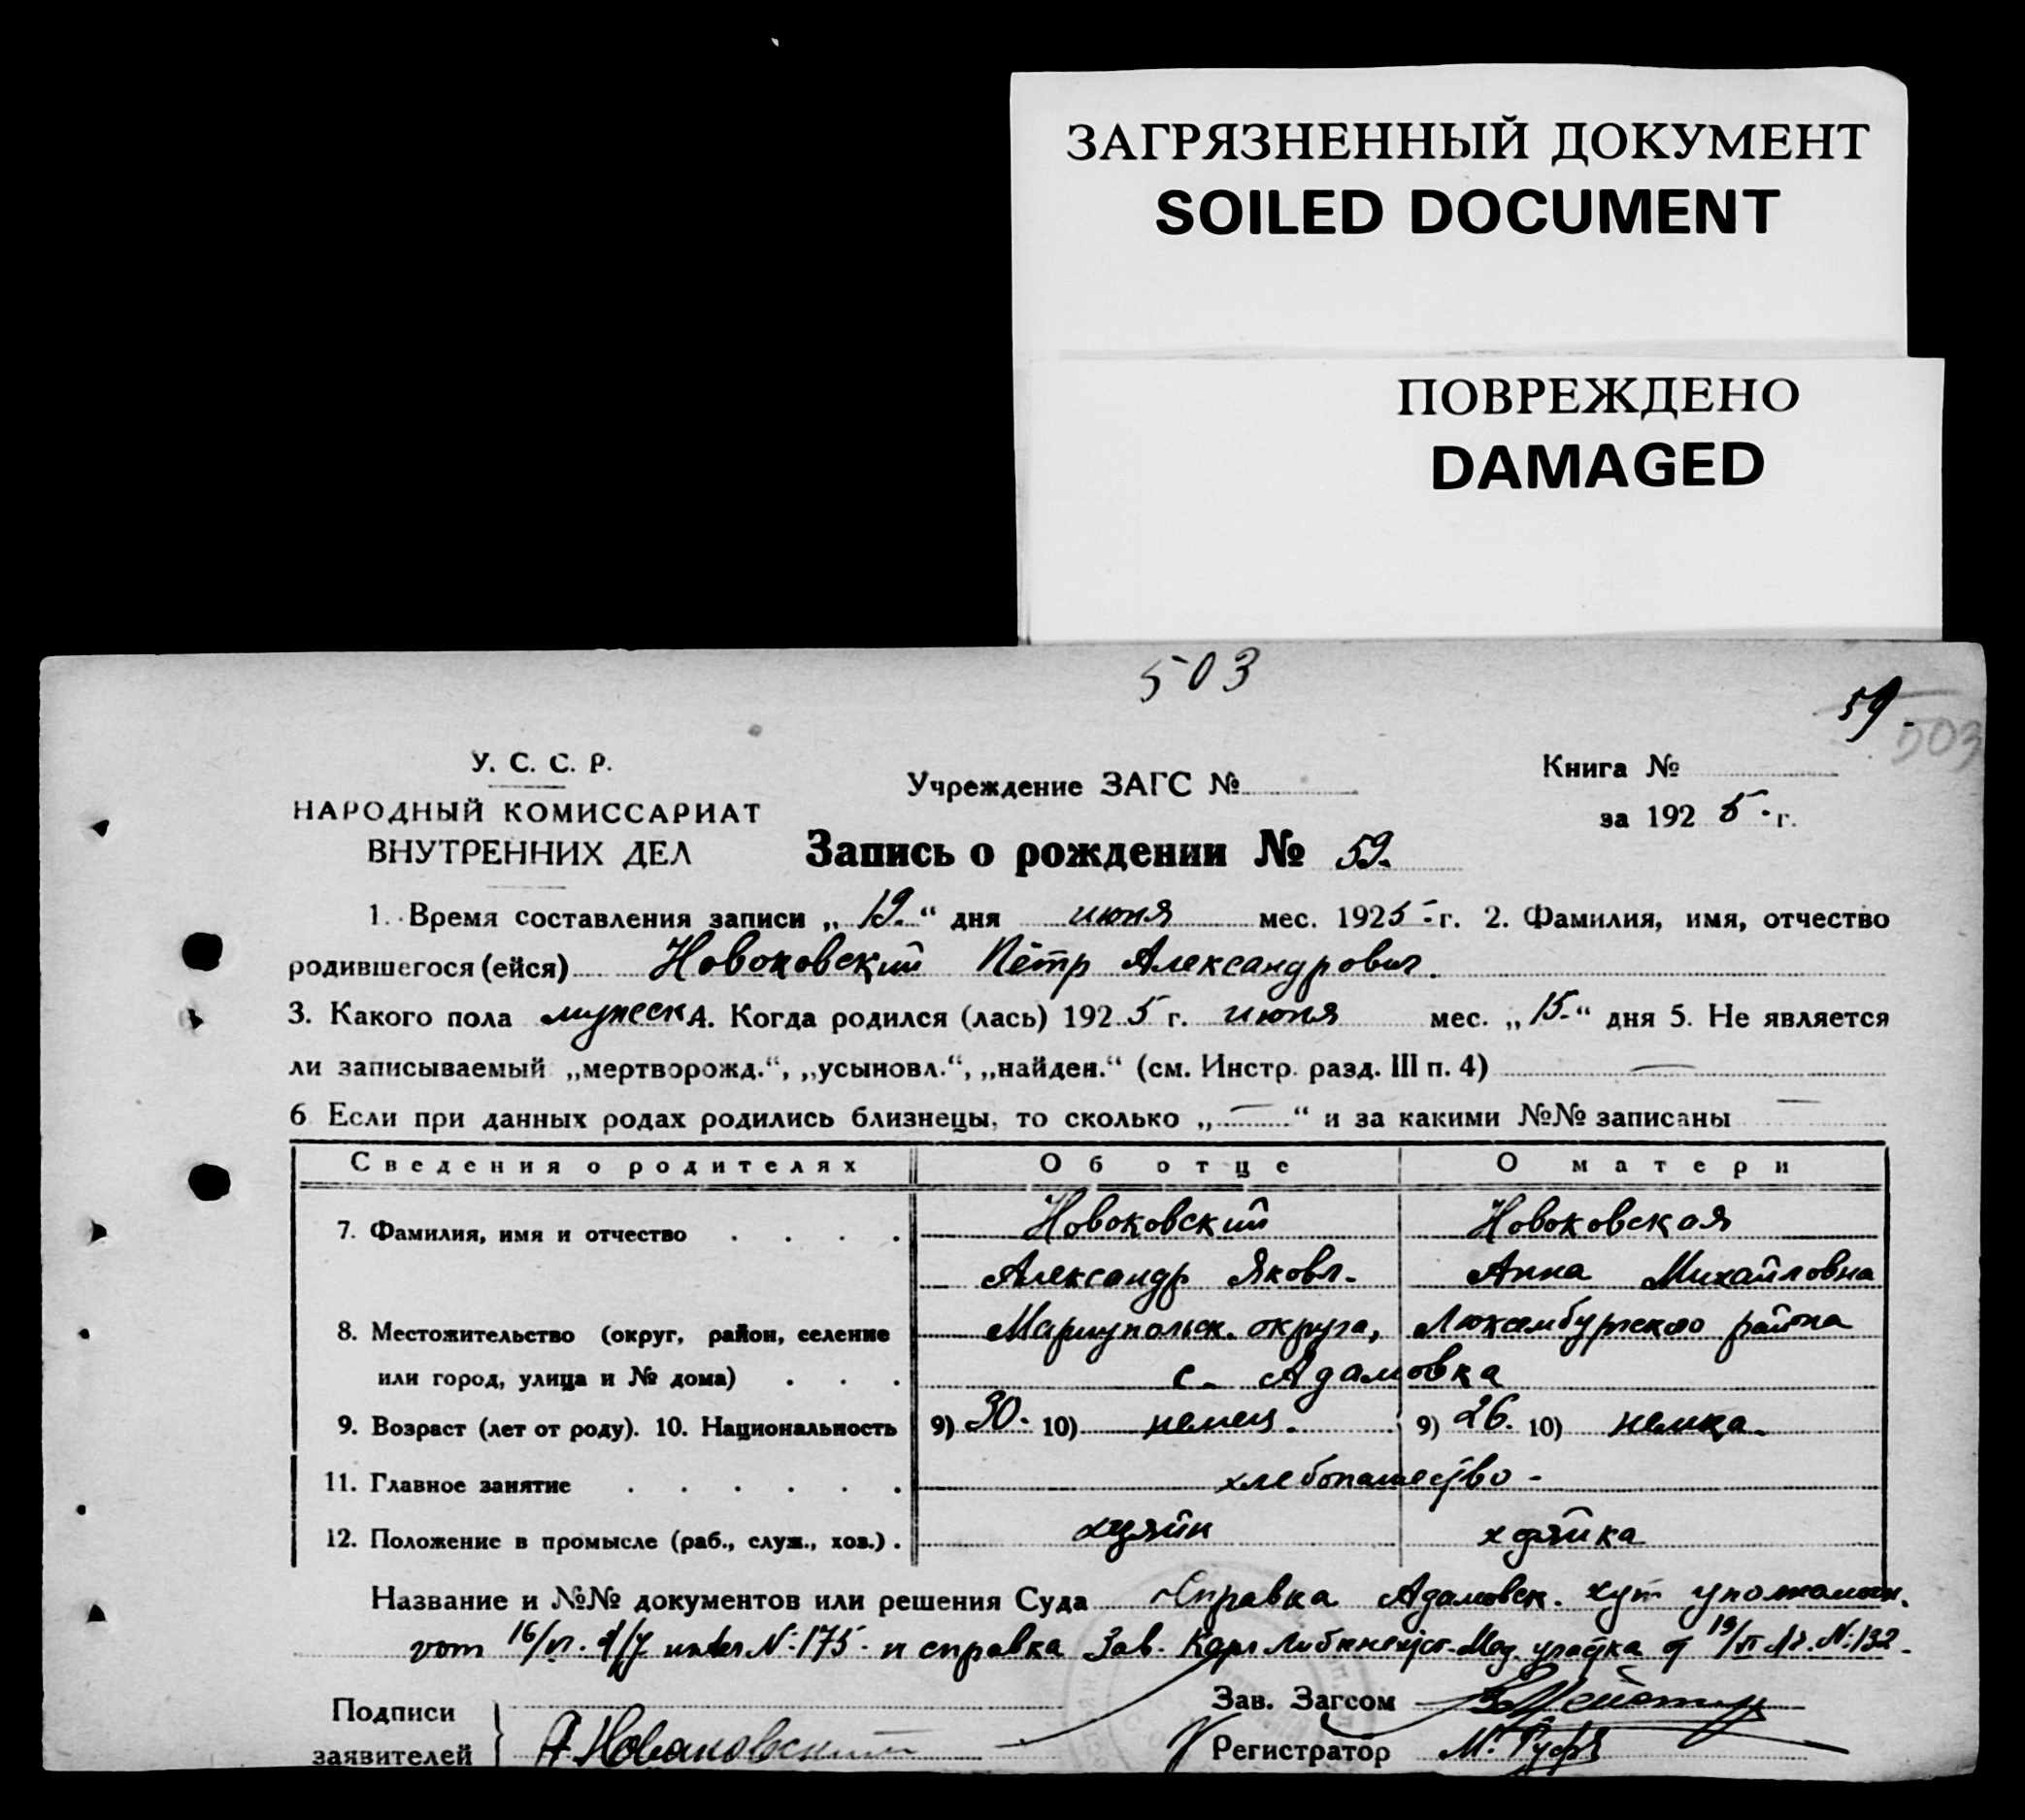 ЗАГРЯЗНЕННЫЙ ДОКУМЕНТ
SOILED DOCUMENT
ПОВРЕЖДЕНО
DAMAGED
503
59.
503
У. С. С. Р.
НАРОДНЫЙ КОМИССАРИАТ
ВНУТРЕННИХ ДЕЛ
Учреждение ЗАГС №
Книга №
за 1925 г.
Запись о рождении № 59.
1. Время составления записи „19.“ дня июня мес. 1925 г. 2. Фамилия, имя, отчество
родившегося (ейся) Новоковский Пётр Александрович.
3. Какого пола мужеск 4. Когда родился (лась) 1925 г. июня мес. „15.“ дня 5. Не является
ли записываемый „мертворожд.“, „усыновл.“, „найден.“ (см. Инстр. разд. III п. 4) —
6 Если при данных родах родились близнецы, то сколько „—“ и за какими №№ записаны —
Сведения о родителях Об отце О матери
7. Фамилия, имя и отчество . . . . Новоковский Новоковская
Александр Яковл. Анна Михайловна
8. Местожительство (округ, район, селение Мариупольск. округа, Люксембургского района
или город, улица и № дома) . . . с. Адамовка
9. Возраст (лет от роду). 10. Национальность 9) 30. 10) немец. 9) 26. 10) немка.
11. Главное занятие . . . . . . хлебопашество -
12. Положение в промысле (раб., служ., хоз.) . хозяйн хозяйка
Название и №№ документов или решения Суда Справка Адамовск. хут уполномоч.
vom 16/VI. unter N: 175. и справка Зав. Карл Либкнехтск. Мед. участка N: 132.
Подписи
заявителей А Новаковский
Зав. Загсом
Регистратор М.